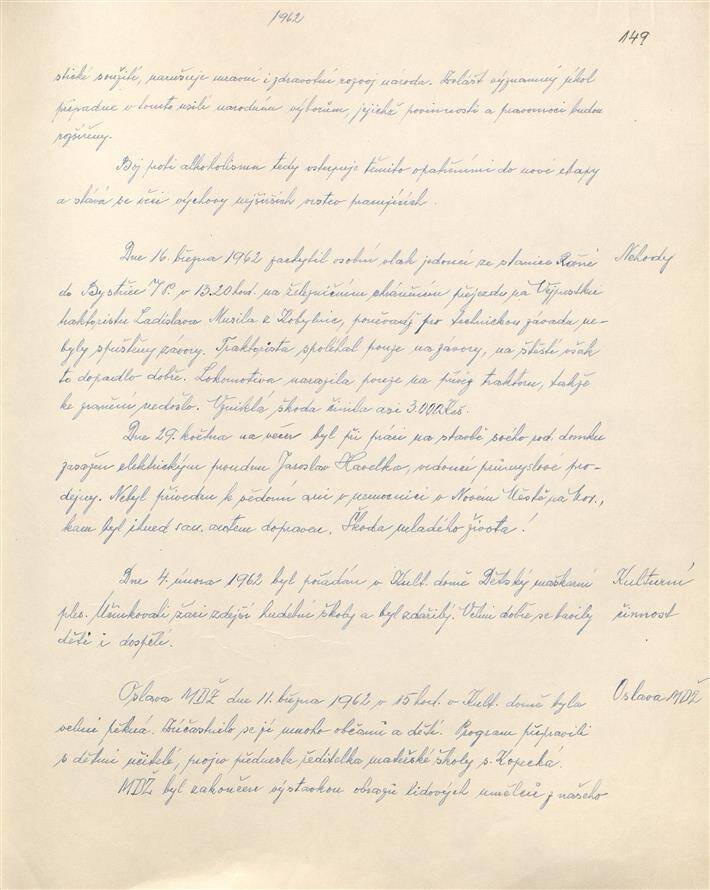 1962
149
stické soužití, narušuje mravní i zdravotní rozvoj národa. Zvlášť významný úkol
připadne v tomto úsilí národním výborům, jejichž povinnosti a pravomoci budou
rozšířeny.
Boj proti alkoholismu tedy vstupuje těmito opatřeními do nové etapy
a stává se věcí výchovy nejširších vrstev pracujících.
Dne 16. března 1962 zachytil osobní vlak jedoucí ze stanice Rožné
Nehody
do Bystřice n/P. v 13.20 hod. na železničním chráněném přejezdu na Výpustku
traktoristu Ladislava Musila z Kobylnic, poněvadž pro technickou závadu ne-
byly spuštěny závory. Traktorista spoléhal pouze na závory, na štěstí však
to dopadlo dobře. Lokomotiva narazila pouze na přívěs traktoru, takže
ke zranění nedošlo. Vzniklá škoda činila asi 3.000 Kčs.
Dne 29. května na večer byl při práci na stavbě svého rod. domku
zasažen elektrickým proudem Jaroslav Havelka, vedoucí průmyslové pro-
dejny. Nebyl přiveden k vědomí ani v nemocnici v Novém Městě na Mor.,
kam byl ihned san. autem dopraven. Škoda mladého života!
Dne 4. února 1962 byl pořádán v Kult. domě Dětský maškarní
Kulturní
ples. Účinkovali žáci zdejší hudební školy a byl zdařilý. Velmi dobře se bavily
činnost
děti i dospělí.
Oslava MDŽ dne 11. března 1962 v 15 hod. v Kult. domě byla
Oslava MDŽ
velmi pěkná. Zúčastnilo se jí mnoho občanů a dětí. Program připravili
s dětmi učitelé, projev přednesla ředitelka mateřské školy s. Kopecká.
MDŽ byl zakončen výstavkou obrazů lidových umělců z našeho